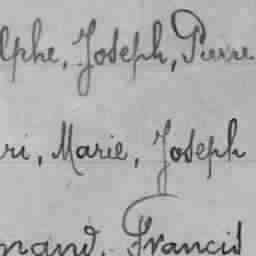 lphe, Joseph, Pierre
ri, Marie, Joseph
nand, Francis